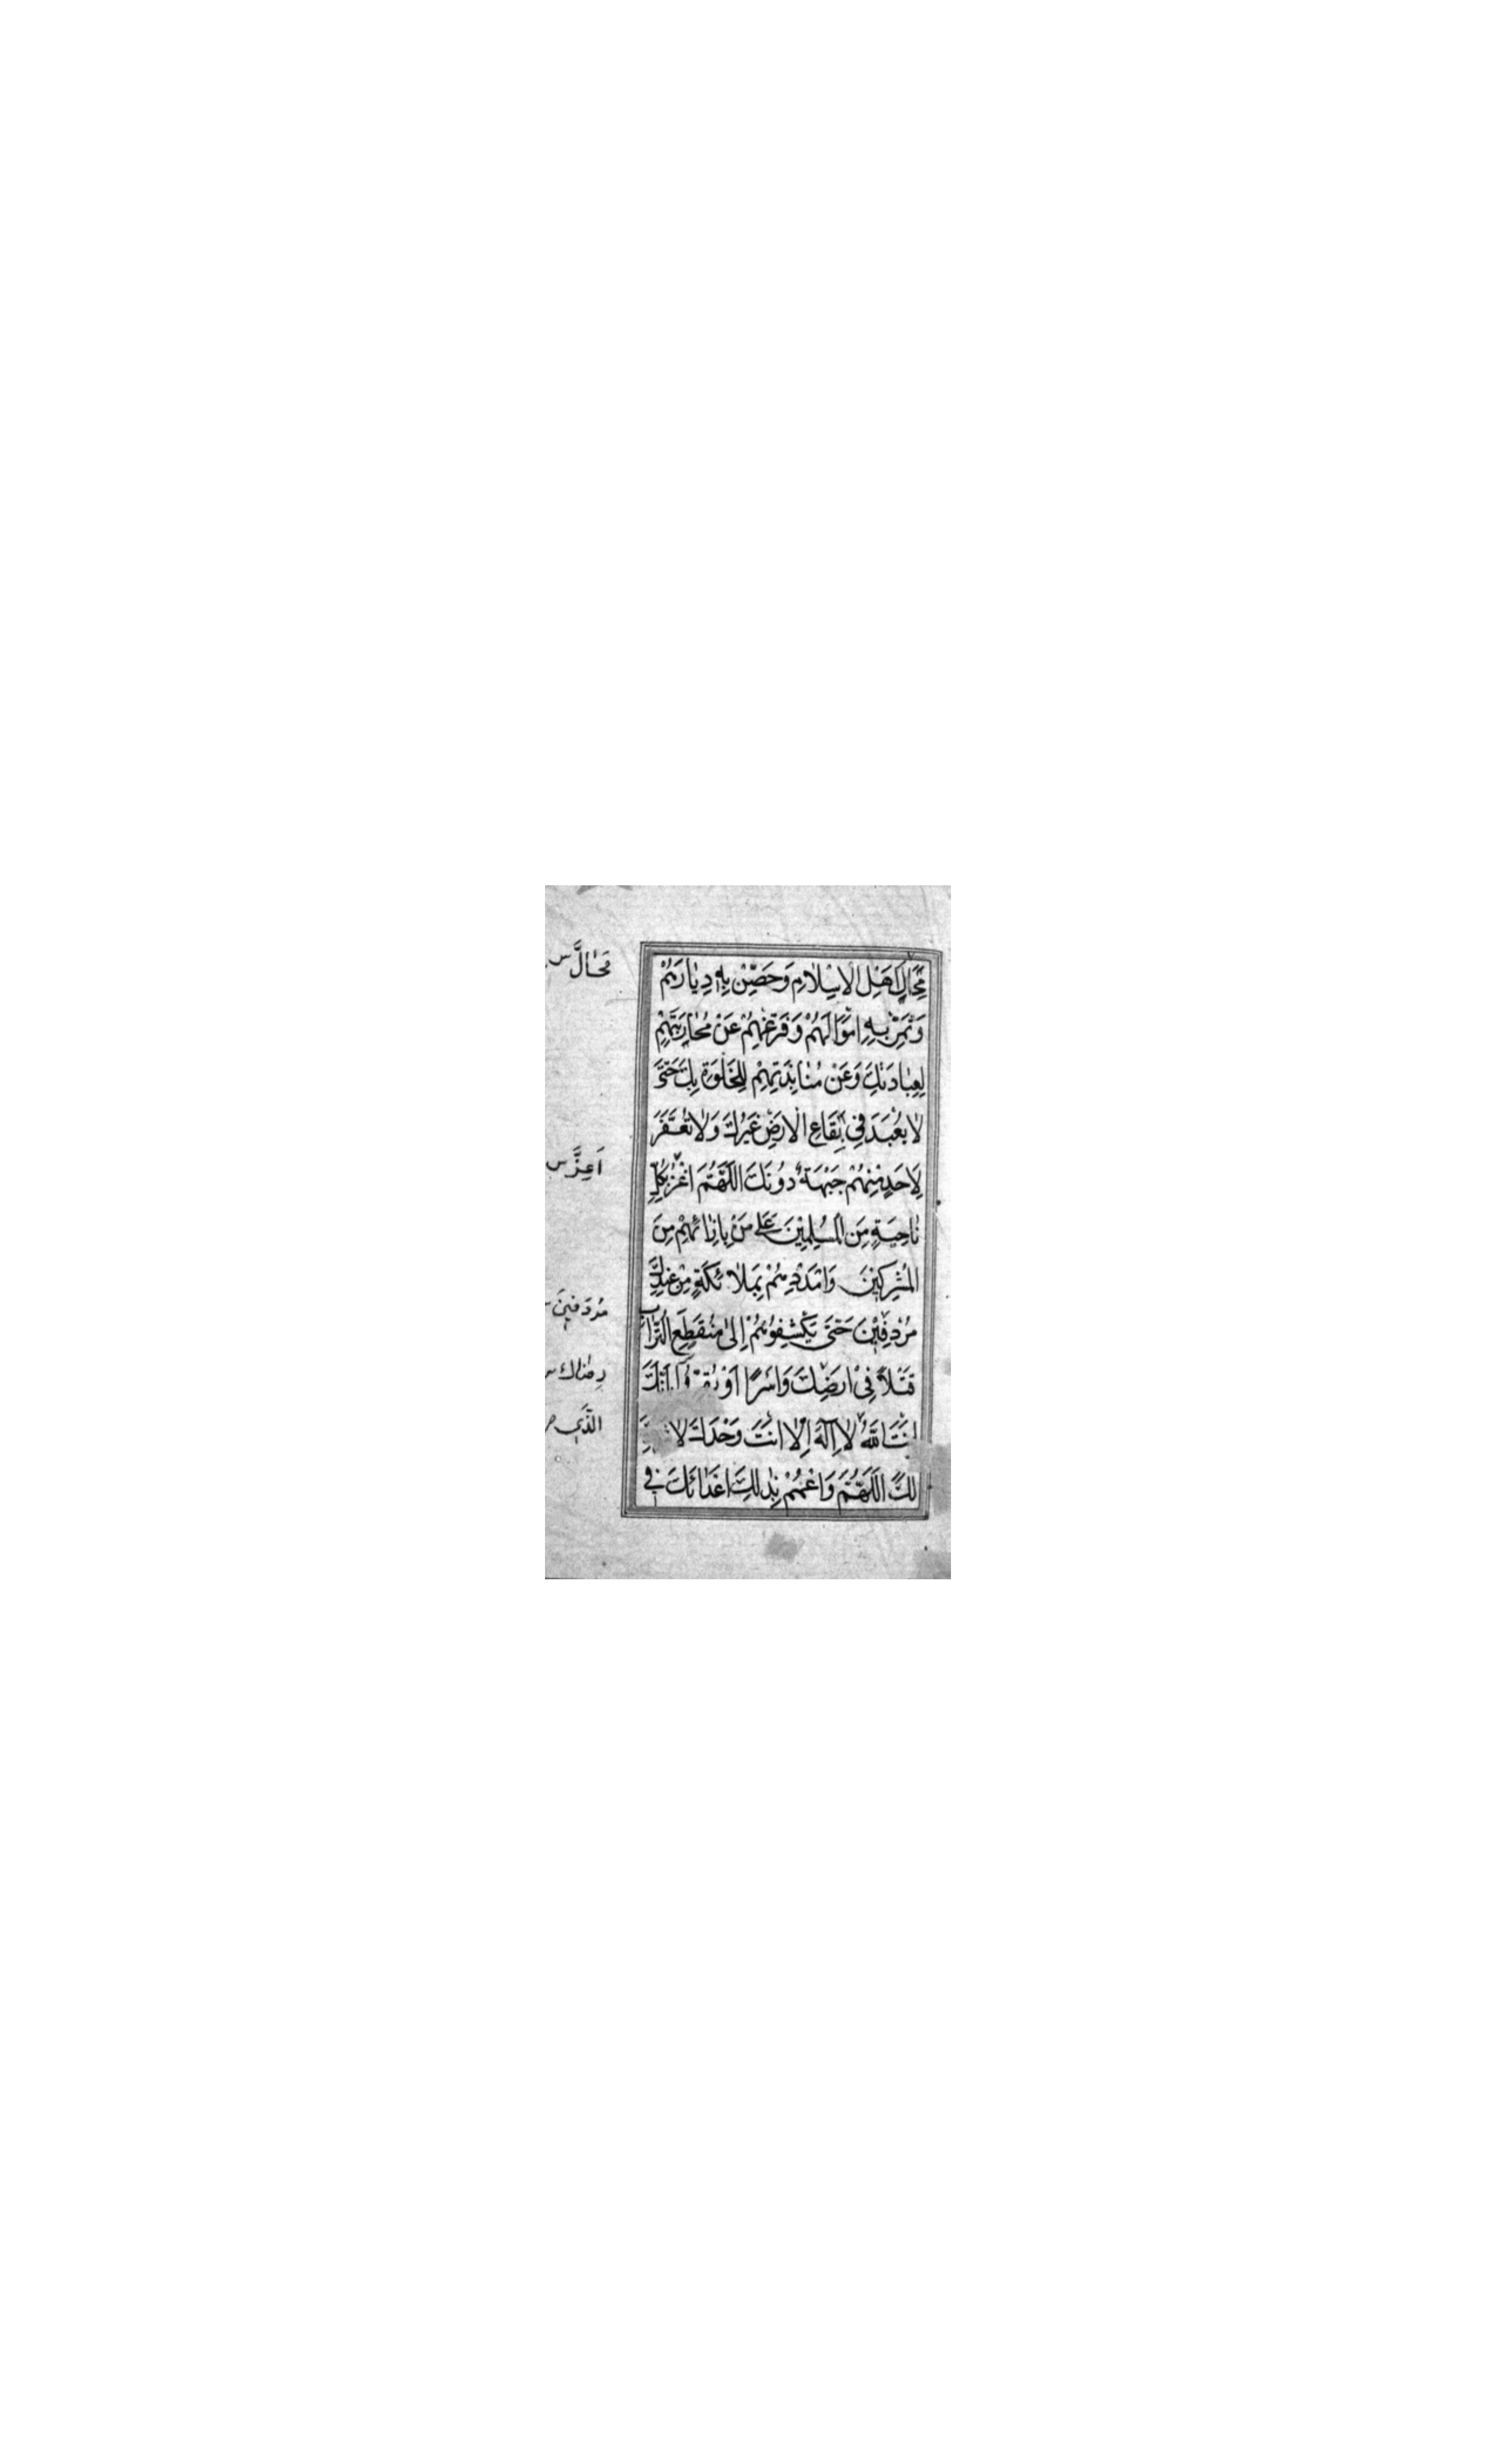 مِحَالَ اَهْلِ الْاِسْلَامِ وَحَصِّنْ بِهِ دِيَارَهُمْ
وَثَمِّرْ بِهِ اَمْوَالَهُمْ وَفَرِّغْهُمْ عَنْ مُحَارَبَتِهِمْ
لِعِبَادَتِكَ وَعَنْ مُنَابَذَتِهِمْ لِلْخَلْوَةِ بِكَ حَتَّى
لَا يُعْبَدَ فِي بِقَاعِ الْاَرْضِ غَيْرُكَ وَلَا تُعَفَّرَ
لِاَحَدٍ مِنْهُمْ جَبْهَةٌ دُونَكَ اَللّٰهُمَّ اغْزُ بِكُلِّ
نَاحِيَةٍ مِنَ الْمُسْلِمِينَ عَلَى مَنْ بِاِزَائِهِمْ مِنَ
الْمُشْرِكِينَ وَامْدُدْهُمْ بِمَلَائِكَةٍ مِنْ عِنْدِكَ
مُرْدِفِينَ حَتَّى يَكْشِفُوهُمْ اِلَى مُنْقَطَعِ التُّرَابِ
قَتْلًا فِي اَرْضِكَ وَاَسْرًا اَوْ
اَنْتَ اللّٰهُ لَا اِلٰهَ اِلَّا اَنْتَ وَحْدَكَ لَا
لَكَ اَللّٰهُمَّ وَاعْمُمْ بِذٰلِكَ اَعْدَائَكَ فِي
مَحَالَّ س
اَعِزَّ س
مُرْدَفِينَ س
رِضَاكَ س
الَّذِي